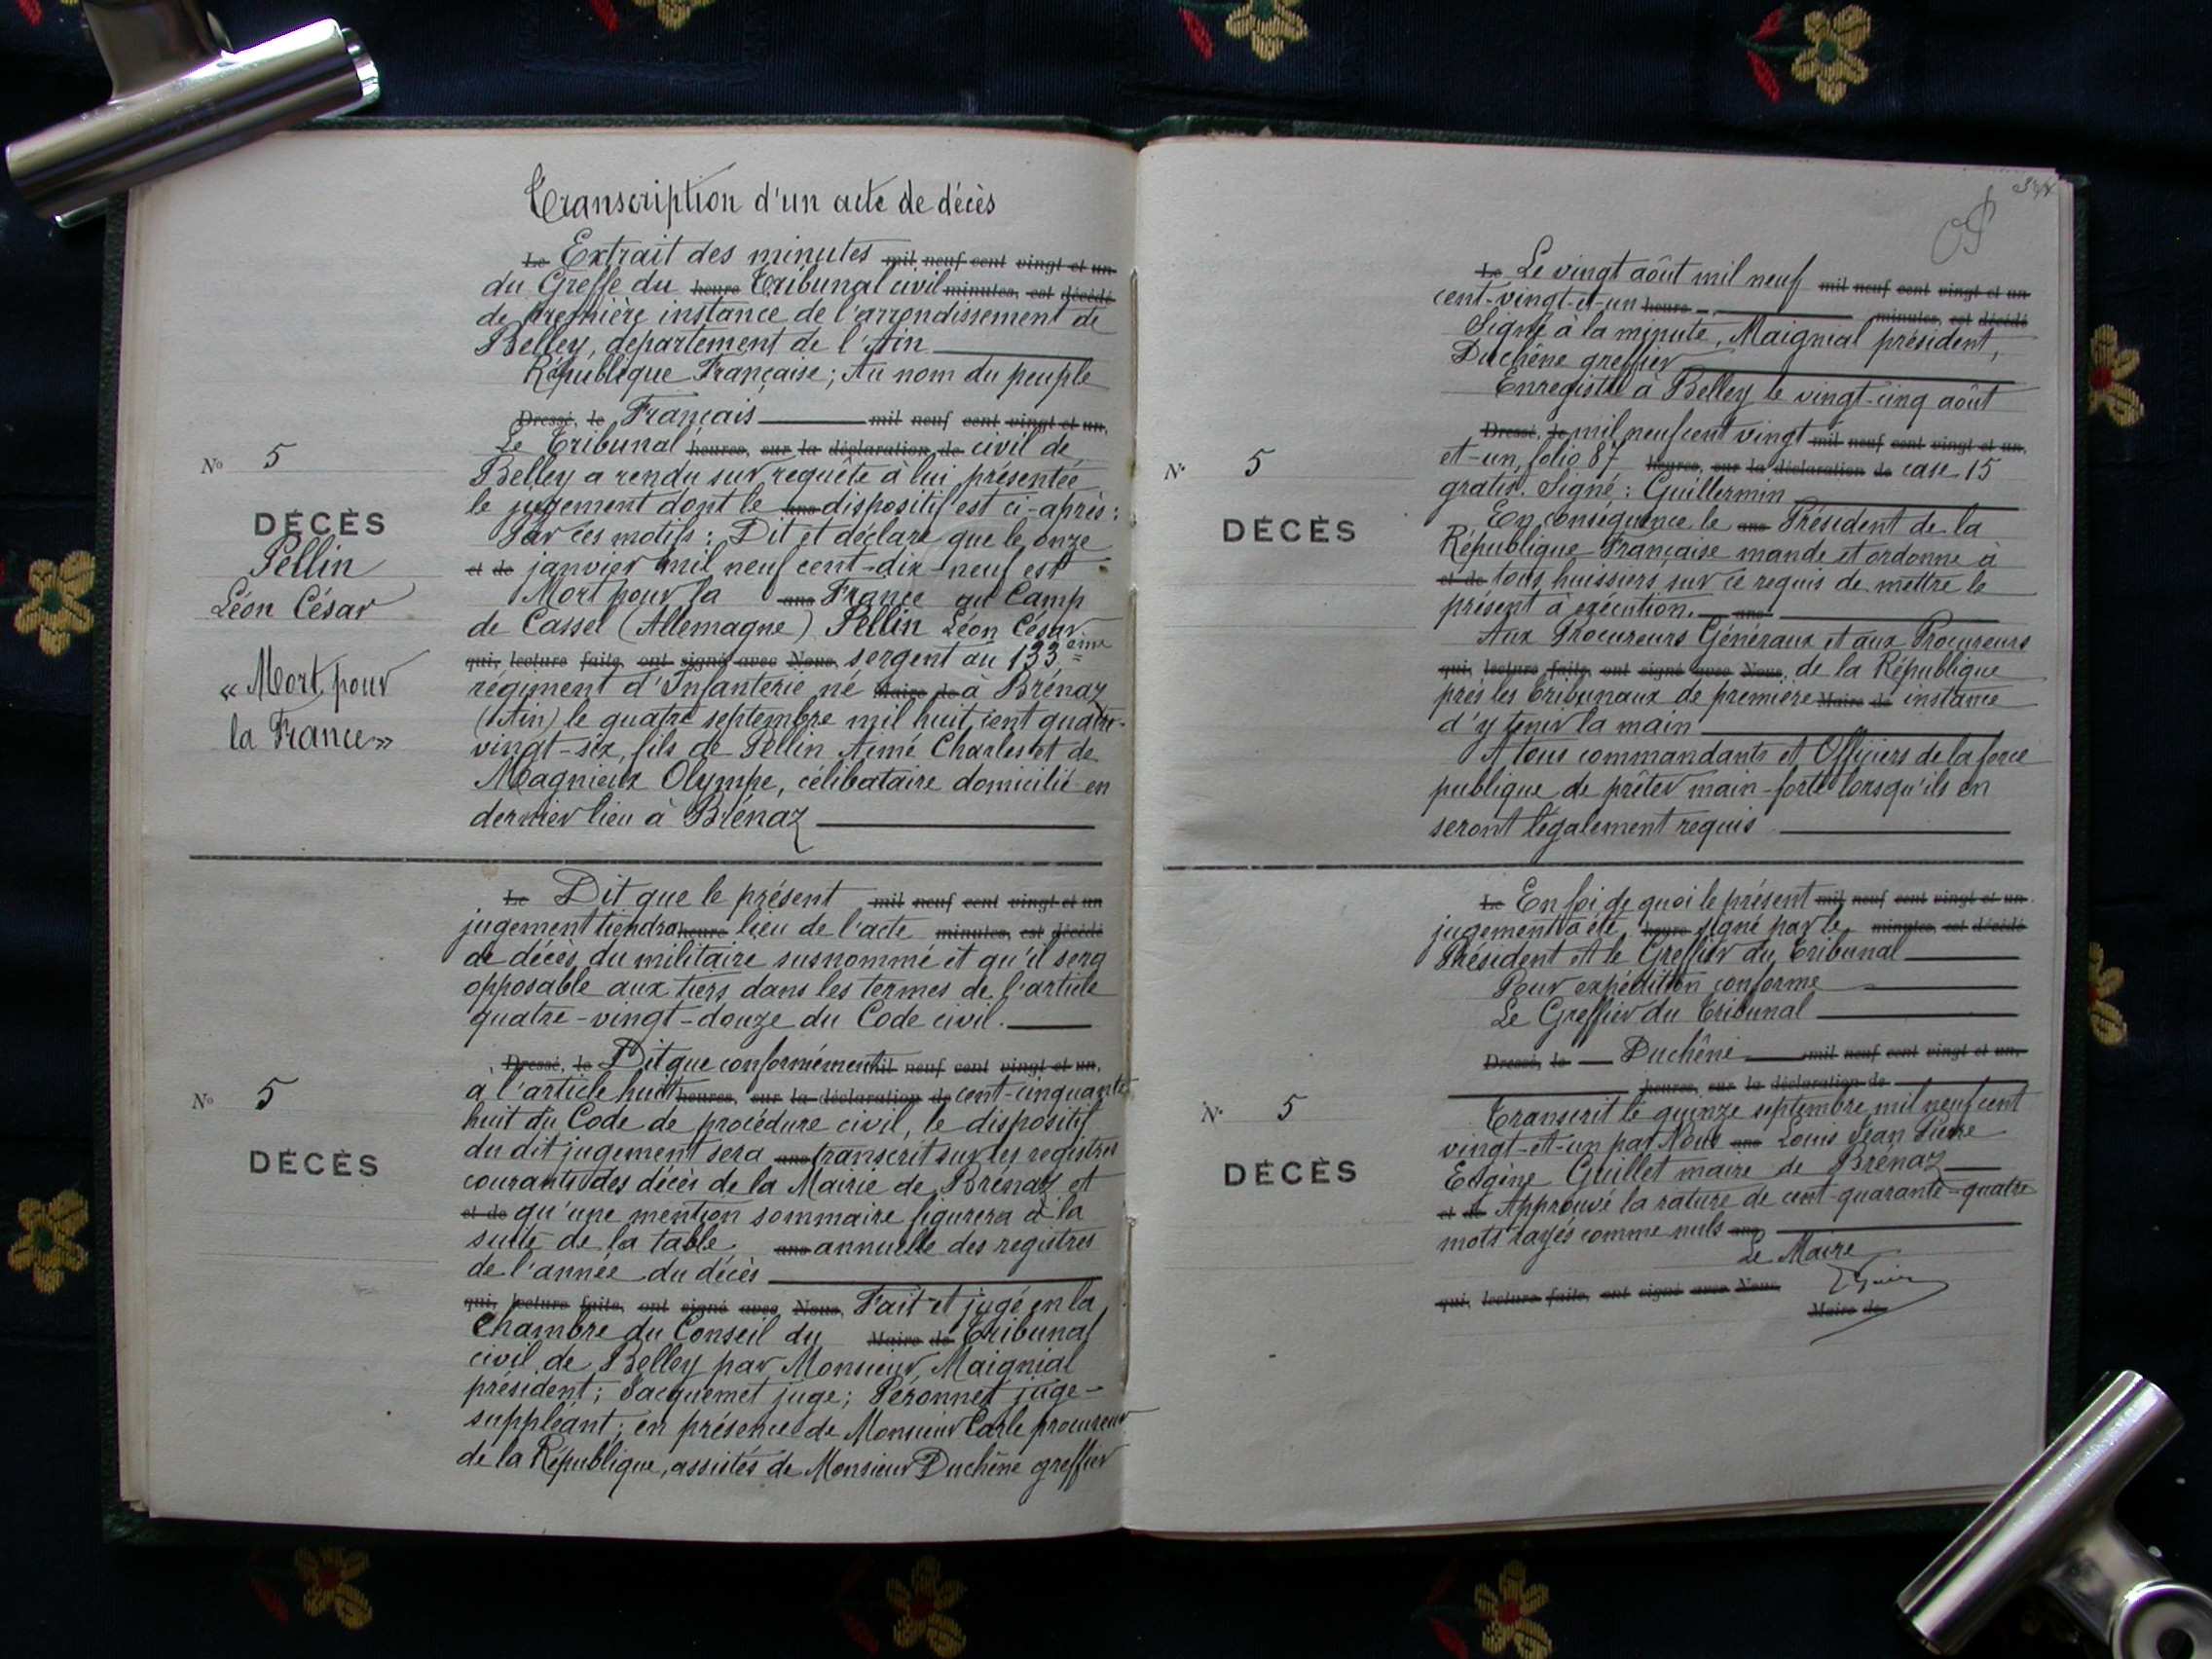 Transcription d'un acte de décès
Le Extrait des minutes mil neuf cent vingt et un
du Greffe du heure Tribunal civil minutes, est décédé
de première instance de l'arrondissement de
Belley, département de l'Ain
République Française; Au nom du peuple
Dressé, le Français mil neuf cent vingt et un,
Le Tribunal heures, sur la déclaration de civil de
Belley a rendu sur requête à lui présentée
le jugement dont le ans dispositif est ci-après:
Par ces motifs: Dit et déclare que le onze
et de janvier mil neuf cent-dix-neuf est
Mort pour la ans France au Camp
de Cassel (Allemagne) Pellin Léon César
qui, lecture faite, ont signé avec Nous, sergent au 133ème
régiment d'Infanterie né Maire de à Brénaz
(Ain) le quatre septembre mil huit cent quatre-
vingt-six, fils de Pellin Aimé Charles et de
Magnieux Olympe, célibataire domicilié en
dernier lieu à Brénaz
No 5
DÉCÈS
Pellin
Léon César
« Mort pour
la France »
Le Dit que le présent mil neuf cent vingt et un
jugement tiendra heure lieu de l'acte minutes, est décédé
de décès du militaire susnommé et qu'il sera
opposable aux tiers dans les termes de l'article
quatre-vingt-douze du Code civil.
Dressé, le Dit que conformément mil neuf cent vingt et un,
a l'article huit heures, sur la déclaration de cent-cinquante
huit du Code de procédure civil, le dispositif
du dit jugement sera ans transcrit sur les registres
courants des décès de la Mairie de Brénaz et
et de qu'une mention sommaire figurera à la
suite de la table ans annuelle des registres
de l'année du décès
qui, lecture faite, ont signé avec Nous, Fait et jugé en la
Chambre du Conseil du Maire de Tribunal
civil de Belley par Monsieur Maignial
président; Jacquemet juge; Péronnet juge-
suppléant; en présence de Monsieur Carle procureur
de la République, assistés de Monsieur Duchêne greffier
No 5
DÉCÈS
Le Le vingt aôut mil neuf mil neuf cent vingt et un
cent-vingt-et-un heure minutes, est décédé
Signé à la minute, Maignial président,
Duchêne greffier
Enregistré à Belley le vingt-cinq aôut
Dressé, le mil neuf cent vingt mil neuf cent vingt et un,
et-un, folio 87 heures, sur la déclaration de case 15
gratis. Signé: Guillermin
En conséquence le ans Président de la
République Française mande et ordonne à
et de tous huissiers sur ce requis de mettre le
présent à exécution. ans
Aux Procureurs Généraux et aux Procureurs
qui, lecture faite, ont signé avec Nous, de la République
près les tribunaux de première Maire de instance
d'y tenir la main
A tous commandants et Officiers de la force
publique de prêter main-forte lorsqu'ils en
seront légalement requis
No 5
DÉCÈS
Le En foi de quoi le présent mil neuf cent vingt et un
jugement a été heure signé par le minutes, est décédé
Président et le Greffier du Tribunal
Pour expédition conforme
Le Greffier du Tribunal
Dressé, le Duchêne mil neuf cent vingt et un,
heures, sur la déclaration de
Transcrit le quinze septembre mil neuf cent
vingt-et-un par Nous ans Louis Jean Pierre
Eugène Guillet maire de Brénaz
et de Approuvé la rature de cent-quarante-quatre
mots rayés comme nuls ans
Le Maire
qui, lecture faite, ont signé avec Nous,
Maire de
No 5
DÉCÈS